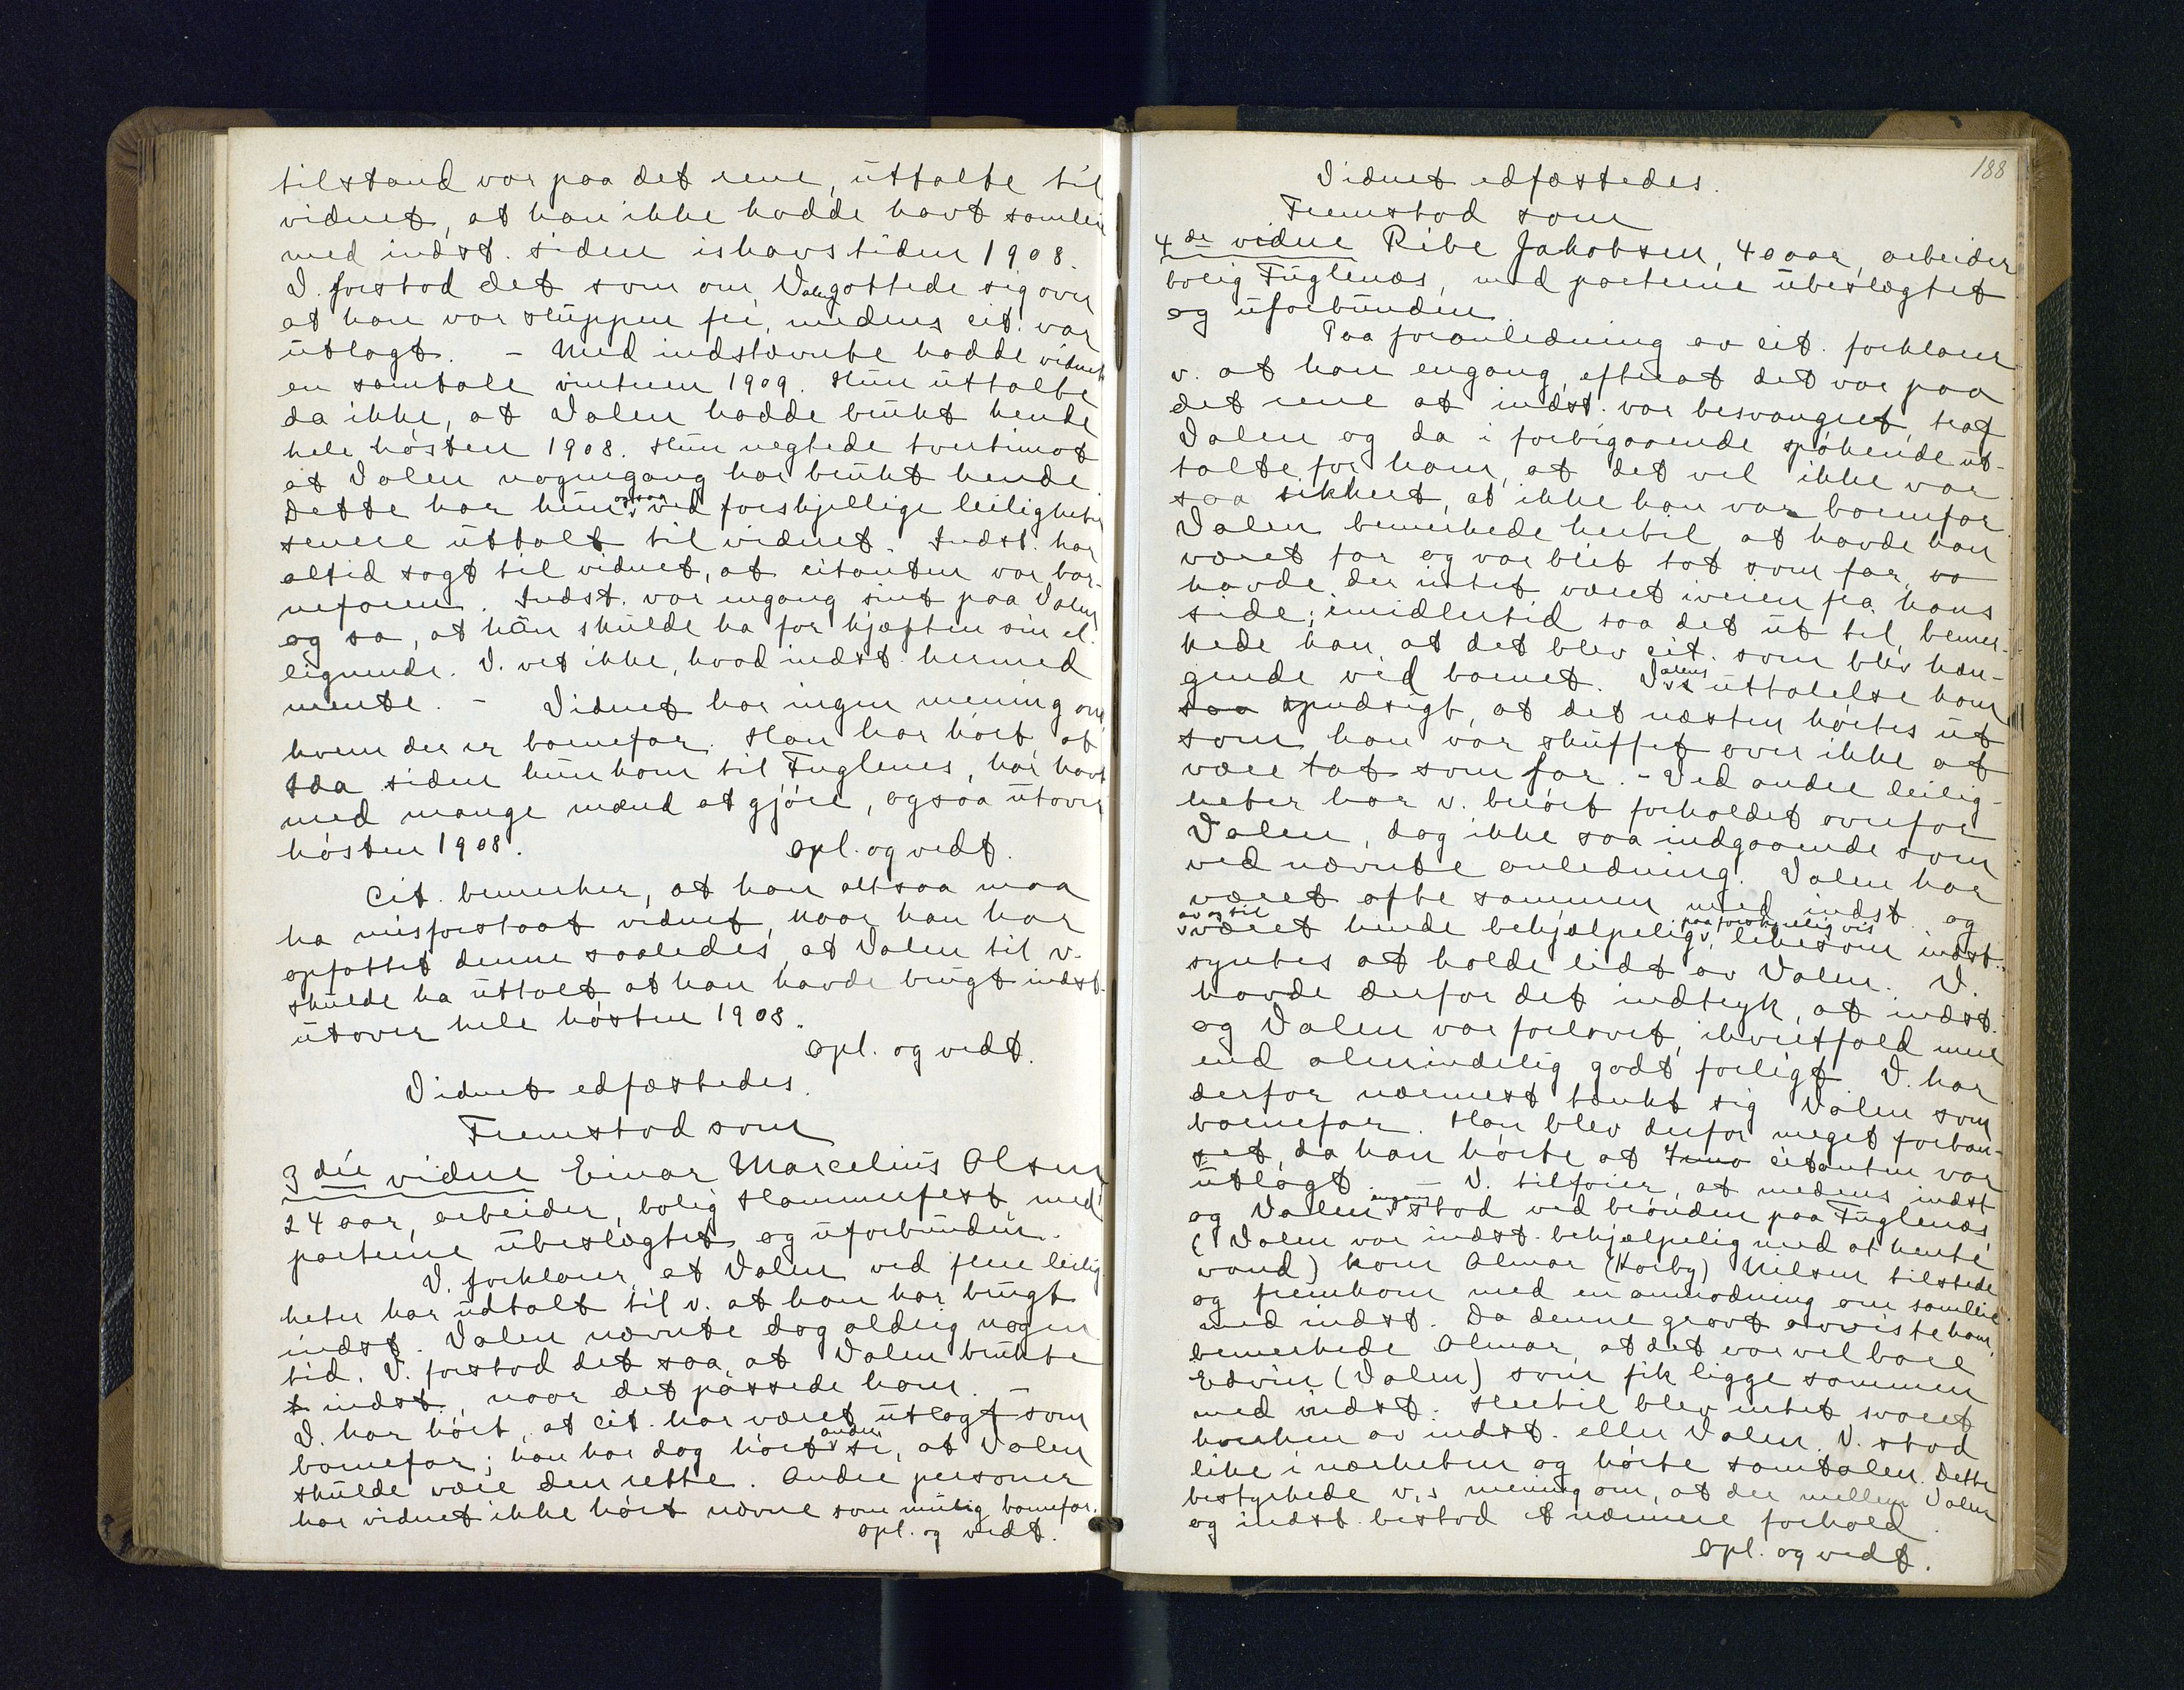 tilstand var paa det rene, uttalte til
vidnet, at han ikke hadde havt samleie
med indst. siden ishavstiden 1908.
V. forstod det som om Valen gottede sig over
at han var sluppen fri, medens cit. var
utlagt. - Med indstævnte hadde vidnet
en samtale vinteren 1909. Hun uttalte
da ikke, at Valen hadde brukt hende
hele høsten 1908. Hun negtede tvertimot
at Valen nogengang har brukt hende.
Dette har hun ogsaa ved forskjellige leiligheter
senere uttalt til vidnet. Indst. har
altid sagt til vidnet, at citanten var bar-
nefaren. Indst. var engang sint paa Valen
og sa, at han skulde ha for kjæften sin el.
lignende. V. vet ikke, hvad indst. hermed
mente. - Vidnet har ingen mening om
hvem der er barnefar. Han har hørt, at
Ida siden hun kom til Fuglenes, har havt
med mange mænd at gjøre, ogsaa utover
høsten 1908. Opl. og vedt.
Cit. bemerker, at han altsaa maa
ha misforstaat vidnet, naar han har
opfattet denne saaledes, at Valen til v.
skulde ha uttalt at han havde brugt indst.
utover hele høsten 1908.
Opl. og vedt.
Vidnet edfæstedes.
Fremstod som
3die vidne Einar Marcelius Olsen
24 aar, arbeider, bolig Hammerfest, med
parterne ubeslægtet og uforbunden.
V. forklarer, at Valen ved flere leilig-
heter har udtalt til v. at han har brugt
indst. Valen nævnte dog aldrig nogen
tid. V. forstod det saa, at Valen brukte
t indst., naar det passede ham. -
V. har hørt, at cit. har været utlagt som
barnefar; han har dog hørt andre si, at Valen
skulde være den rette. Andre personer
har vidnet ikke hørt nævne som mulig barnefar.
Opl. og vedt.
188
Vidnet edfæstedes.
Fremstod som
4de vidne Ribe Jakobsen, 40 aar, arbeider
bolig Fuglenæs, med parterne ubeslægtet
og uforbunden.
Paa foranledning av cit. forklarer
v. at han engang, efterat det var paa
det rene at indst. var besvangret, traf
Valen og da i forbigaaende spøkende ut-
talte for ham, at det vel ikke var
saa sikkert, at ikke han var barnefar.
Valen bemerkede hertil, at havde han
været far og var blit tat som far, va
havde der intet været iveien fra hans
side; imidlertid saa det ut til, bemer-
kede han, at det blev cit. som blev hæn-
gende ved barnet. Valens uttalelse kom
saa spudsigt, at det næsten hørtes ut
som han var skuffet over ikke at
være tat som far. - Ved andre leilig-
heter har v. berørt forholdet overfor
Valen, dog ikke saa indgaaende som
ved nævnte anledning. Valen har
været ofte sammen med indst. og
av og til været hende behjælpelig paa forskjellig vis, likesom indst.
syntes at holde lidt av Valen. V.
havde derfor det indtryk, at indst.
og Valen var forlovet, ihvertfald mere
end almindelig godt forligt. V. har
derfor nærmest tænkt sig Valen som
barnefar. Han blev derfor meget forbau-
set, da han hørte at citanten var
utlagt. - V. tilføier, at medens indst
og Valen engang stod ved brønden paa Fuglenæs
(Valen var indst. behjælpelig med at hente
vand) kom Almar (Korby) Nilsen tilstede
og fremkom med en anmodning om samleie
med indst. Da denne gravt avviste ham,
bemerkede Almar, at det var vel bare
Edvin (Valen) som fik ligge sammen
med indst. Hertil blev intet svaret
hverken av indst. eller Valen. V. stod
like i nærheten og hørte samtalen. Dette
bestyrkede v.s mening om, at der mellem Valen
og indst. bestod et nærmere forhold.
Opl. og vedt.